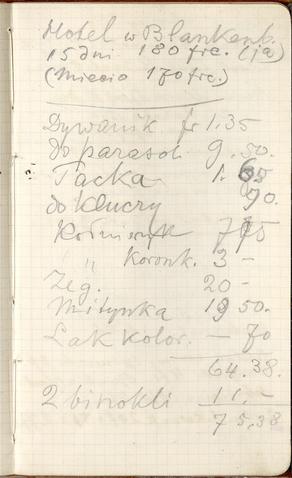 Hotel w Blankenb.
15 dni 180 frc. (ja)
(Miecio 170 frc.)
Dywanik fr 1.35
Do parasol. 9.50.
Tacka 1.65
do kluczy 90.
Kołnierzyk 7
" Koronk. 3 –
Zeg. 20 –
Mitynka 19 50.
Lak kolor. – 70
64.38.
2 binokli 11.–
75.38